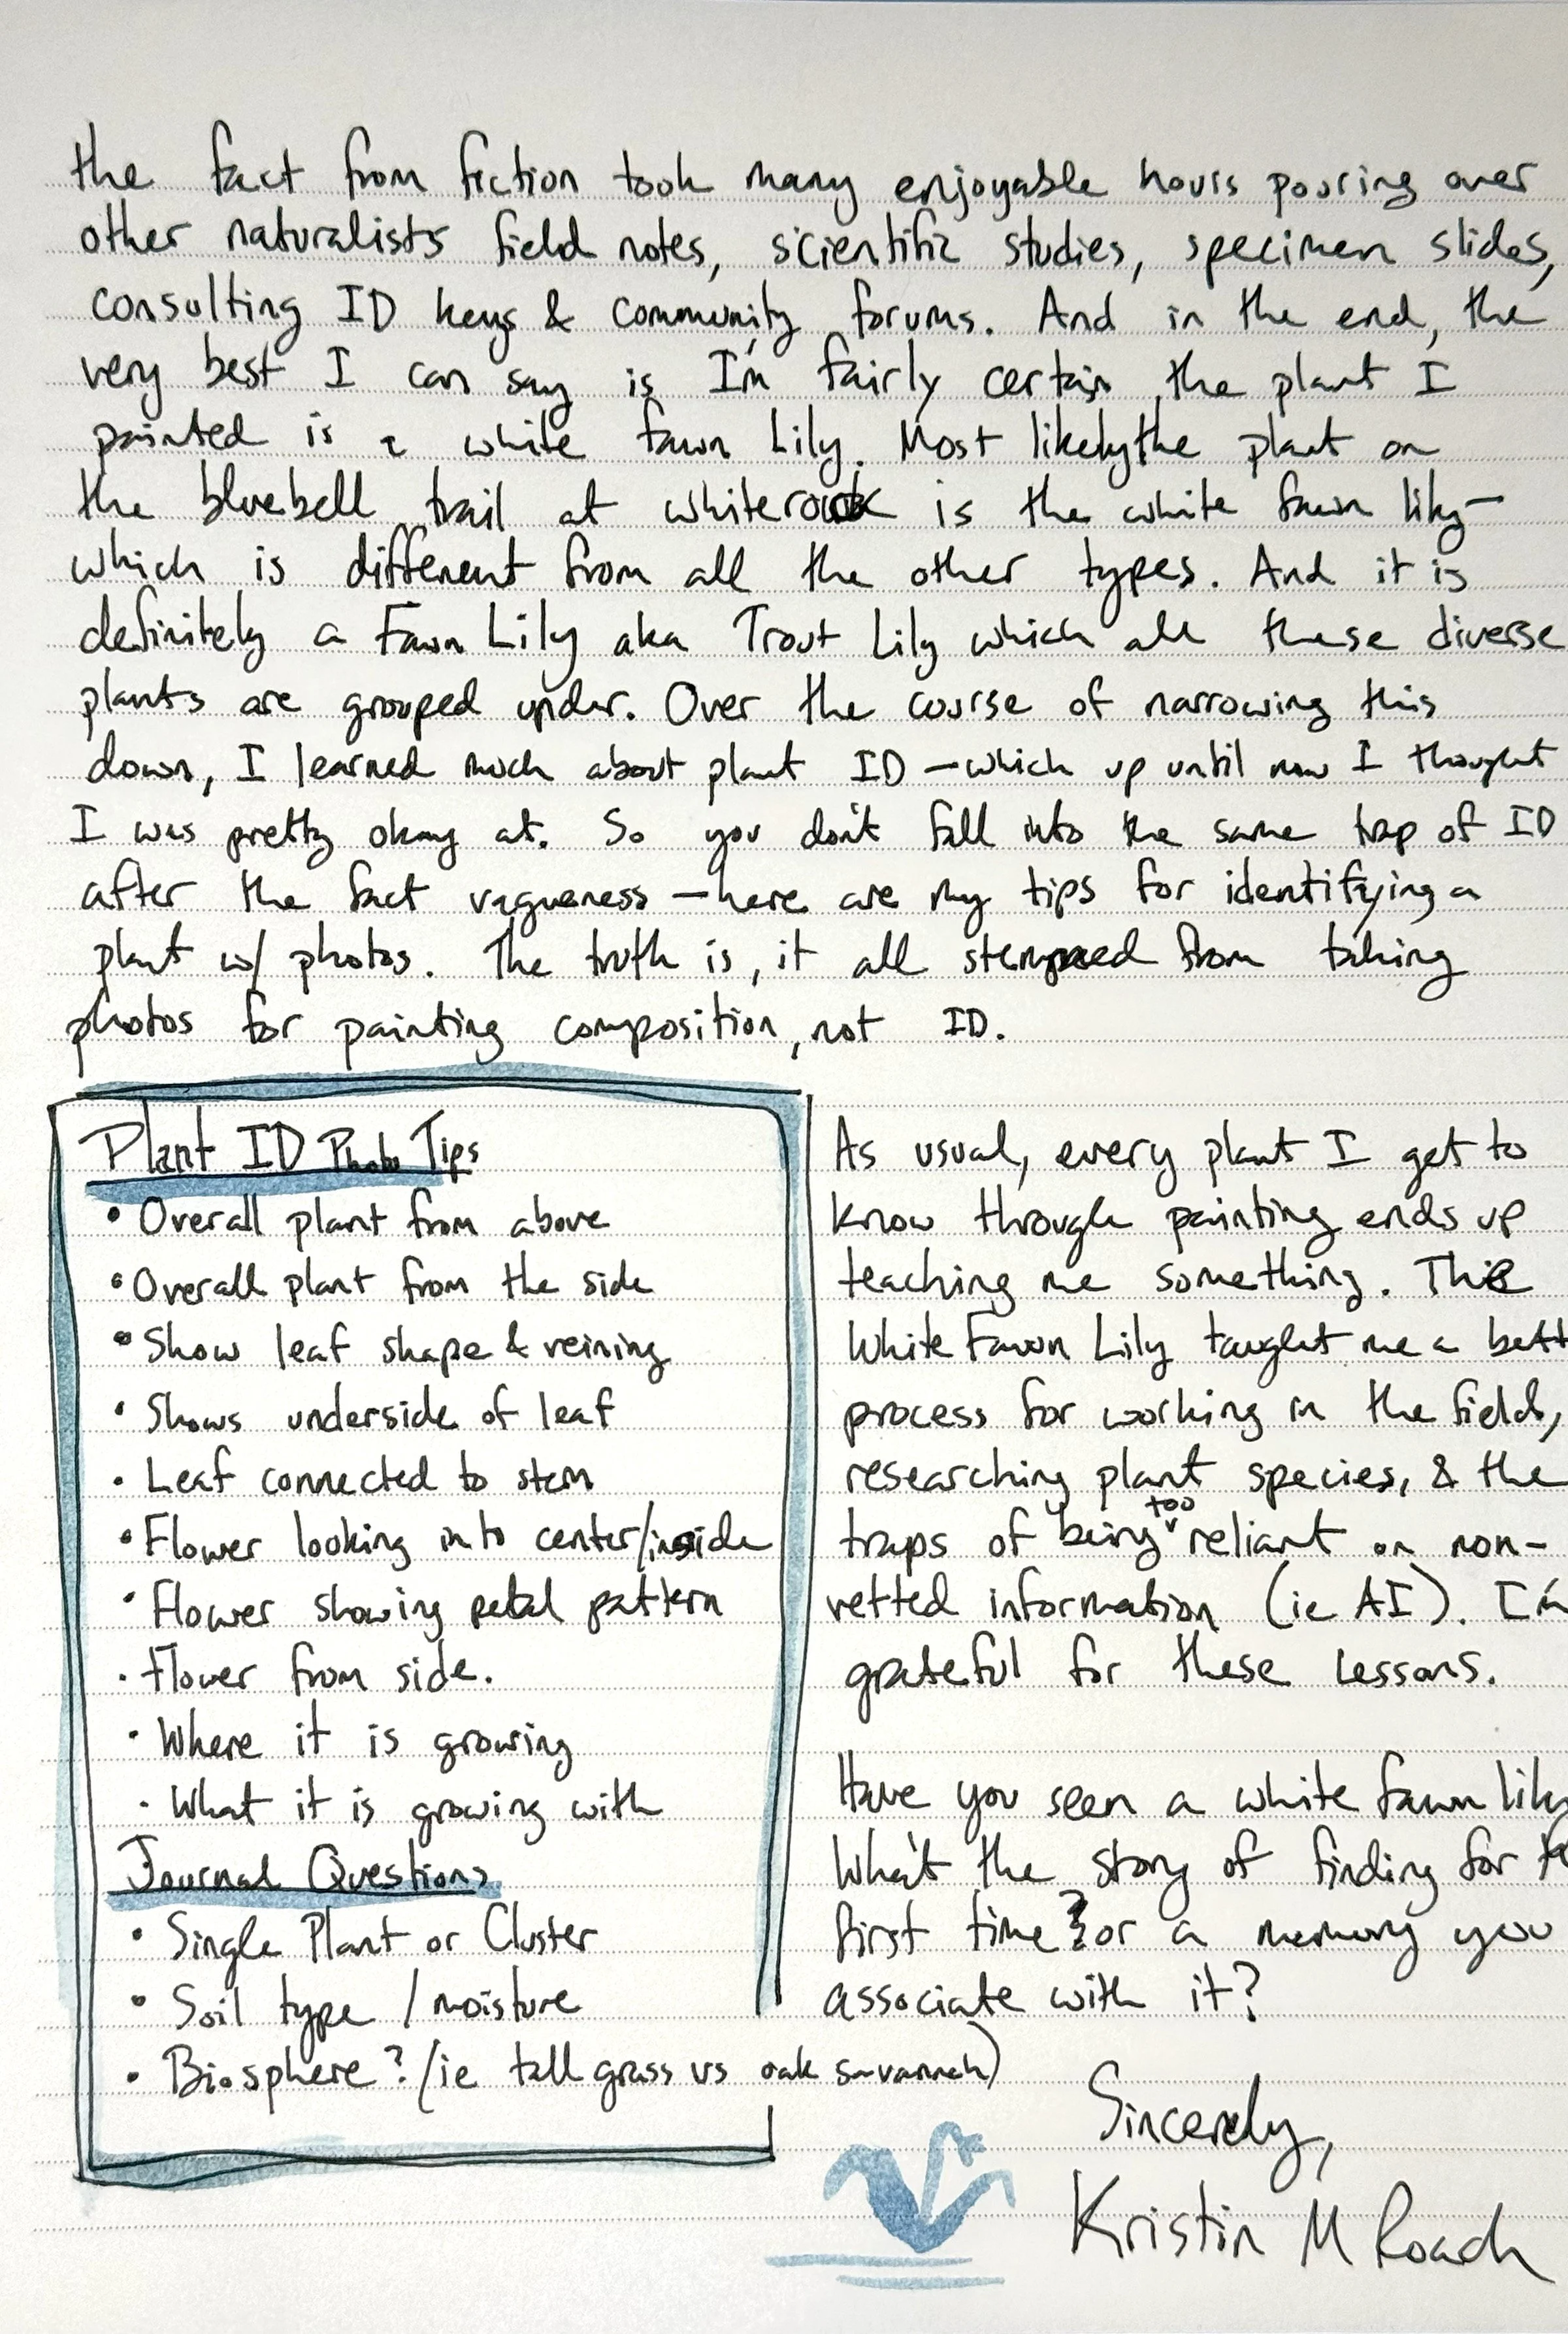 the fact from fiction took many enjoyable hours pouring over
other naturalists field notes, scientific studies, specimen slides,
consulting ID keys & community forums. And in the end, the
very best I can say is I'm fairly certain the plant I
painted is a white fawn Lily. Most likely the plant on
the bluebell trail at whiterock is the white fawn lily—
which is different from all the other types. And it is
definitely a Fawn Lily aka Trout Lily which all these diverse
plants are grouped under. Over the course of narrowing this
down, I learned much about plant ID — which up until now I thought
I was pretty okay at. So you don't fall into the same trap of ID
after the fact vagueness — here are my tips for identifying a
plant w/ photos. The truth is, it all stemmed from taking
photos for painting composition, not ID.
Plant ID Photo Tips
• Overall plant from above
• Overall plant from the side
• Show leaf shape & veining
• Shows underside of leaf
• Leaf connected to stem
• Flower looking into center/inside
• Flower showing petal pattern
• Flower from side.
• Where it is growing
• What it is growing with
Journal Questions
• Single Plant or Cluster
• Soil type / moisture
• Biosphere? (ie tall grass vs oak savannah)
As usual, every plant I get to
know through painting ends up
teaching me something. The
White Fawn Lily taught me a bett
process for working in the field,
researching plant species, & the
traps of being too reliant on non-
vetted information (ie AI). I'm
grateful for these lessons.
Have you seen a white fawn lily
What the story of finding for
first time? or a memory you
associate with it?
Sincerely,
Kristin M Roach